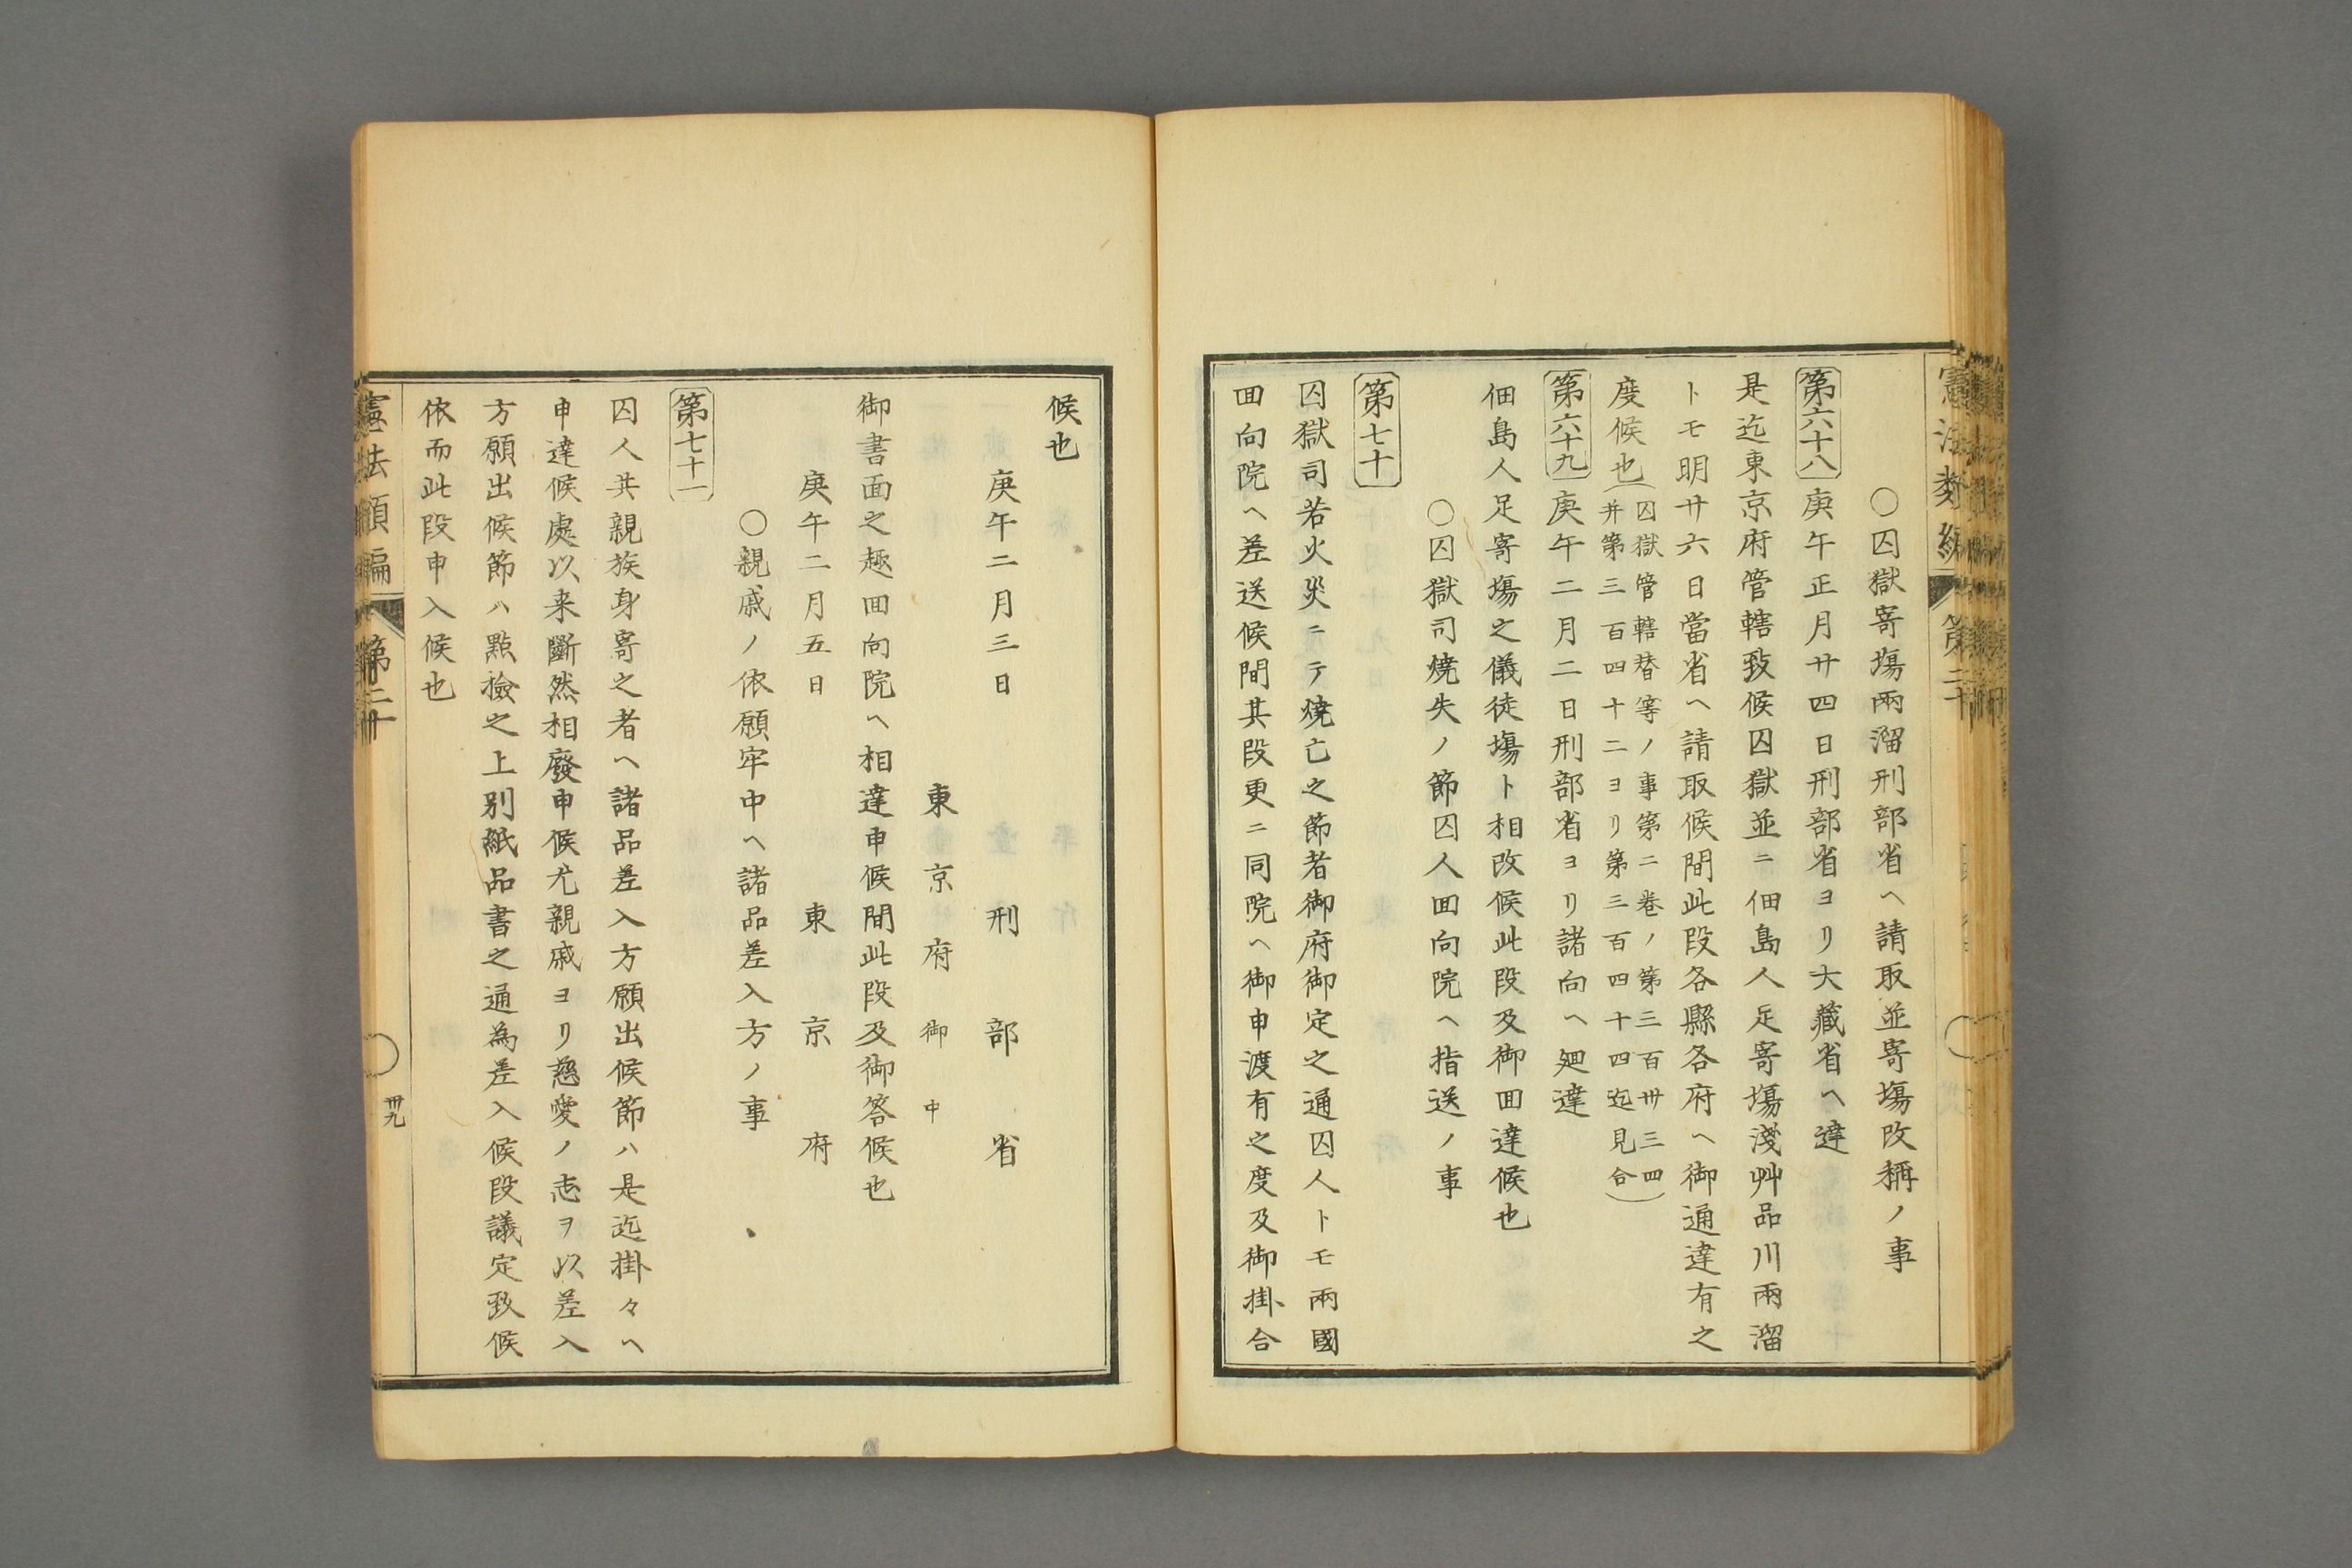 ○囚獄寄塲兩溜刑部省ヘ請取並寄塲改稱ノ事
第六十八 庚午正月廿四日刑部省ヨリ大藏省ヘ達
是迄東京府管轄致候囚獄並ニ佃島人足寄塲淺艸品川兩溜
トモ明廿六日當省ヘ請取候間此段各縣各府ヘ御通達有之
度候也(囚獄管轄替等ノ事第二巻ノ第三百卅三四
并第三百四十二ヨリ第三百四十四迄見合)
第六十九 庚午二月二日刑部省ヨリ諸向ヘ廻達
佃島人足寄塲之儀徒塲ト相改候此段及御回達候也
○囚獄司燒失ノ節囚人回向院ヘ指送ノ事
第七十
囚獄司若火災ニテ燒亡之節者御府御定之通囚人トモ兩國
回向院ヘ差送候間其段更ニ同院ヘ御申渡有之度及御掛合
候也
庚午二月三日 刑部省
東京府御中
御書面之趣回向院ヘ相達申候間此段及御答候也
庚午二月五日 東京府
○親戚ノ依願牢中ヘ諸品差入方ノ事
第七十一
囚人共親族身寄之者ヘ諸品差入方願出候節ハ是迄掛々ヘ
申達候處以来斷然相廢申候尤親戚ヨリ慈愛ノ志ヲ以差入
方願出候節ハ點檢之上別紙品書之通為差入候段議定致候
依而此段申入候也
憲法類編 第二十
卅九